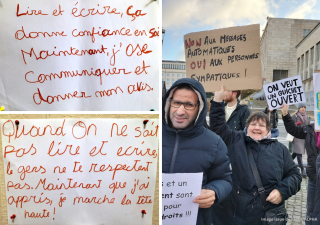 Lire et écrire, ça
donne confiance en soi
Maintenant, j'ose
Communiquer et
donner mon avis.
Quand On ne sait
pas lire et écrire,
les gens ne te respectent
pas. Maintenant que j'ai
appris, je marche la tête
haute!
NON AUX MESSAGES
AUTOMATIQUES
OUI AUX PERSONNES
SYMPATHIQUES!
ON VEUT
UN GUICHET
OUVERT
s et un
ent sont
pour
droits !!!